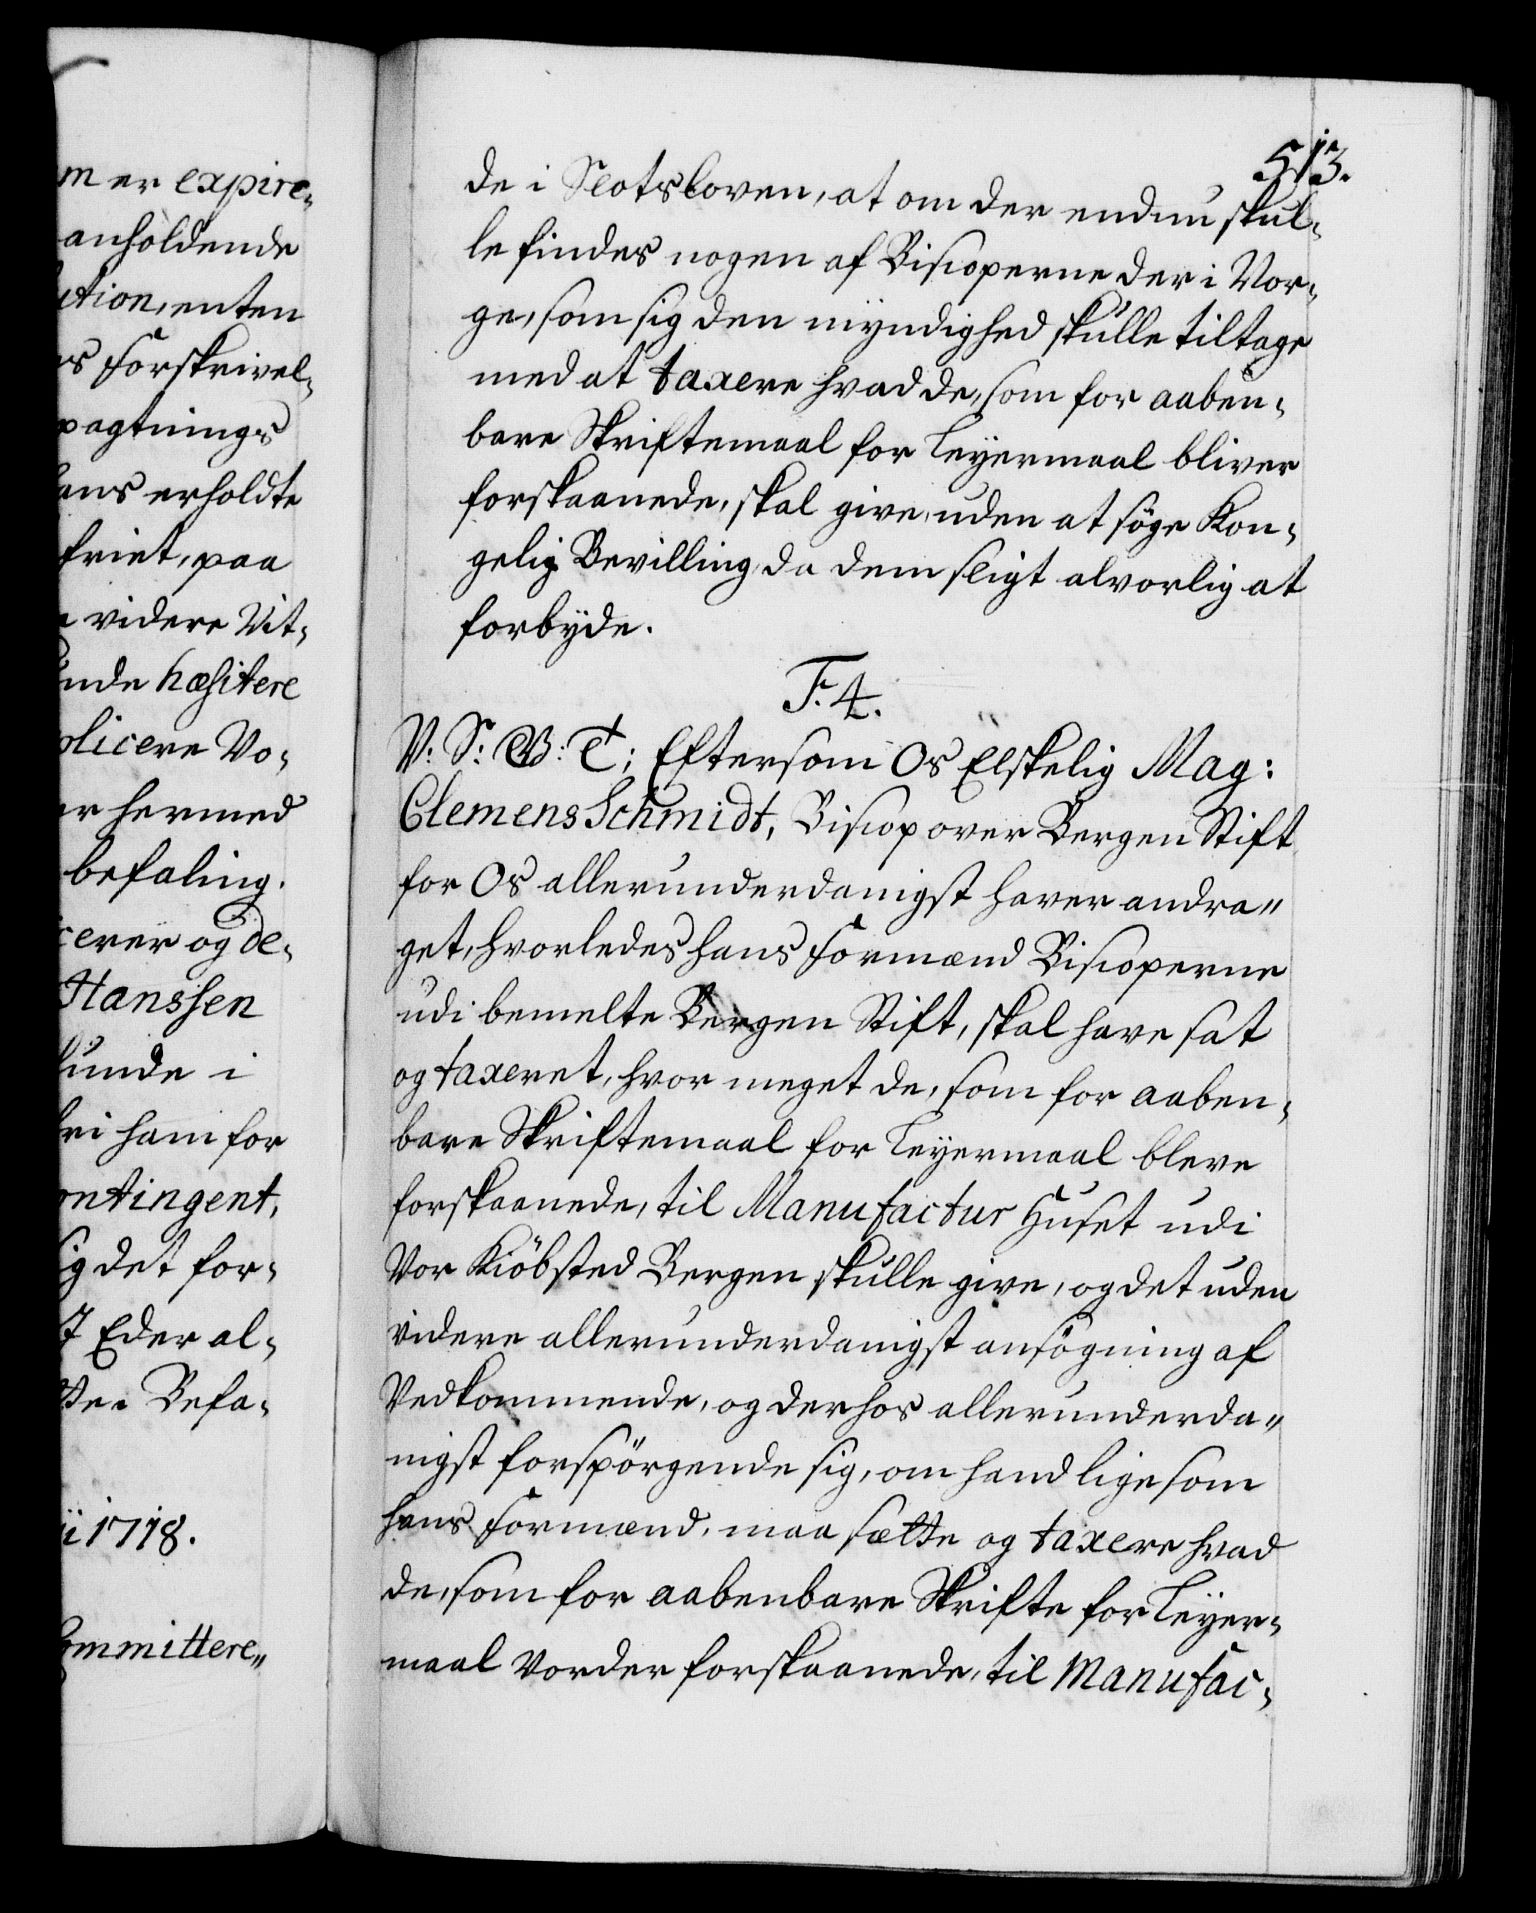 m er expire-
anholdende
ution, enten
s Forskrivel-
pagtnings
ans erholdte
friet, paa
videre Vit-
nde hæsitere
plicere Vo-
er hermed
befaling.
cerer og de-
Hanssen
unde i
fri ham for
ontingent,
ig det for-
J Eder al-
Befa-
ii 1718.
ommittere-
513.
de i Slotsloven, at om der endnu skul-
le findes nogen af Biscoperne der i Nor-
ge, som sig den myndighed skulle tiltage
med at taxere hvad de, som for aaben-
bare Skriftemaal for Leyermaal bliver
forskaanede, skal give, uden at söge Kon-
gelig Bevilling, da dem sligt alvorlig at
forbyde.
F. 4.
V: S: G: V: T; Eftersom Os Elskelig Mag:
Clemens Schmidt, Biscop over Bergen Stift
for Os allerunderdanigst haver andra-
get, hvorledes hans Formænd Biscoperne
udi bemelte Bergen Stift, skal have sat
og taxeret, hvor meget de, som for aaben-
bare Skriftemaal for Leyermaal bleve
forskaanede, til Manufactur Huset udi
Vor Kiöbsted Bergen skulle give, og det uden
videre allerunderdanigst ansögning af
Vedkommende, og derhos allerunderda-
nigst forspörgende sig, om hand ligesom
hans Formænd, maa sætte og taxere hvad
de, som for aabenbare Skrifte for Leyer-
maal vorder forskaanede, til Manufac-